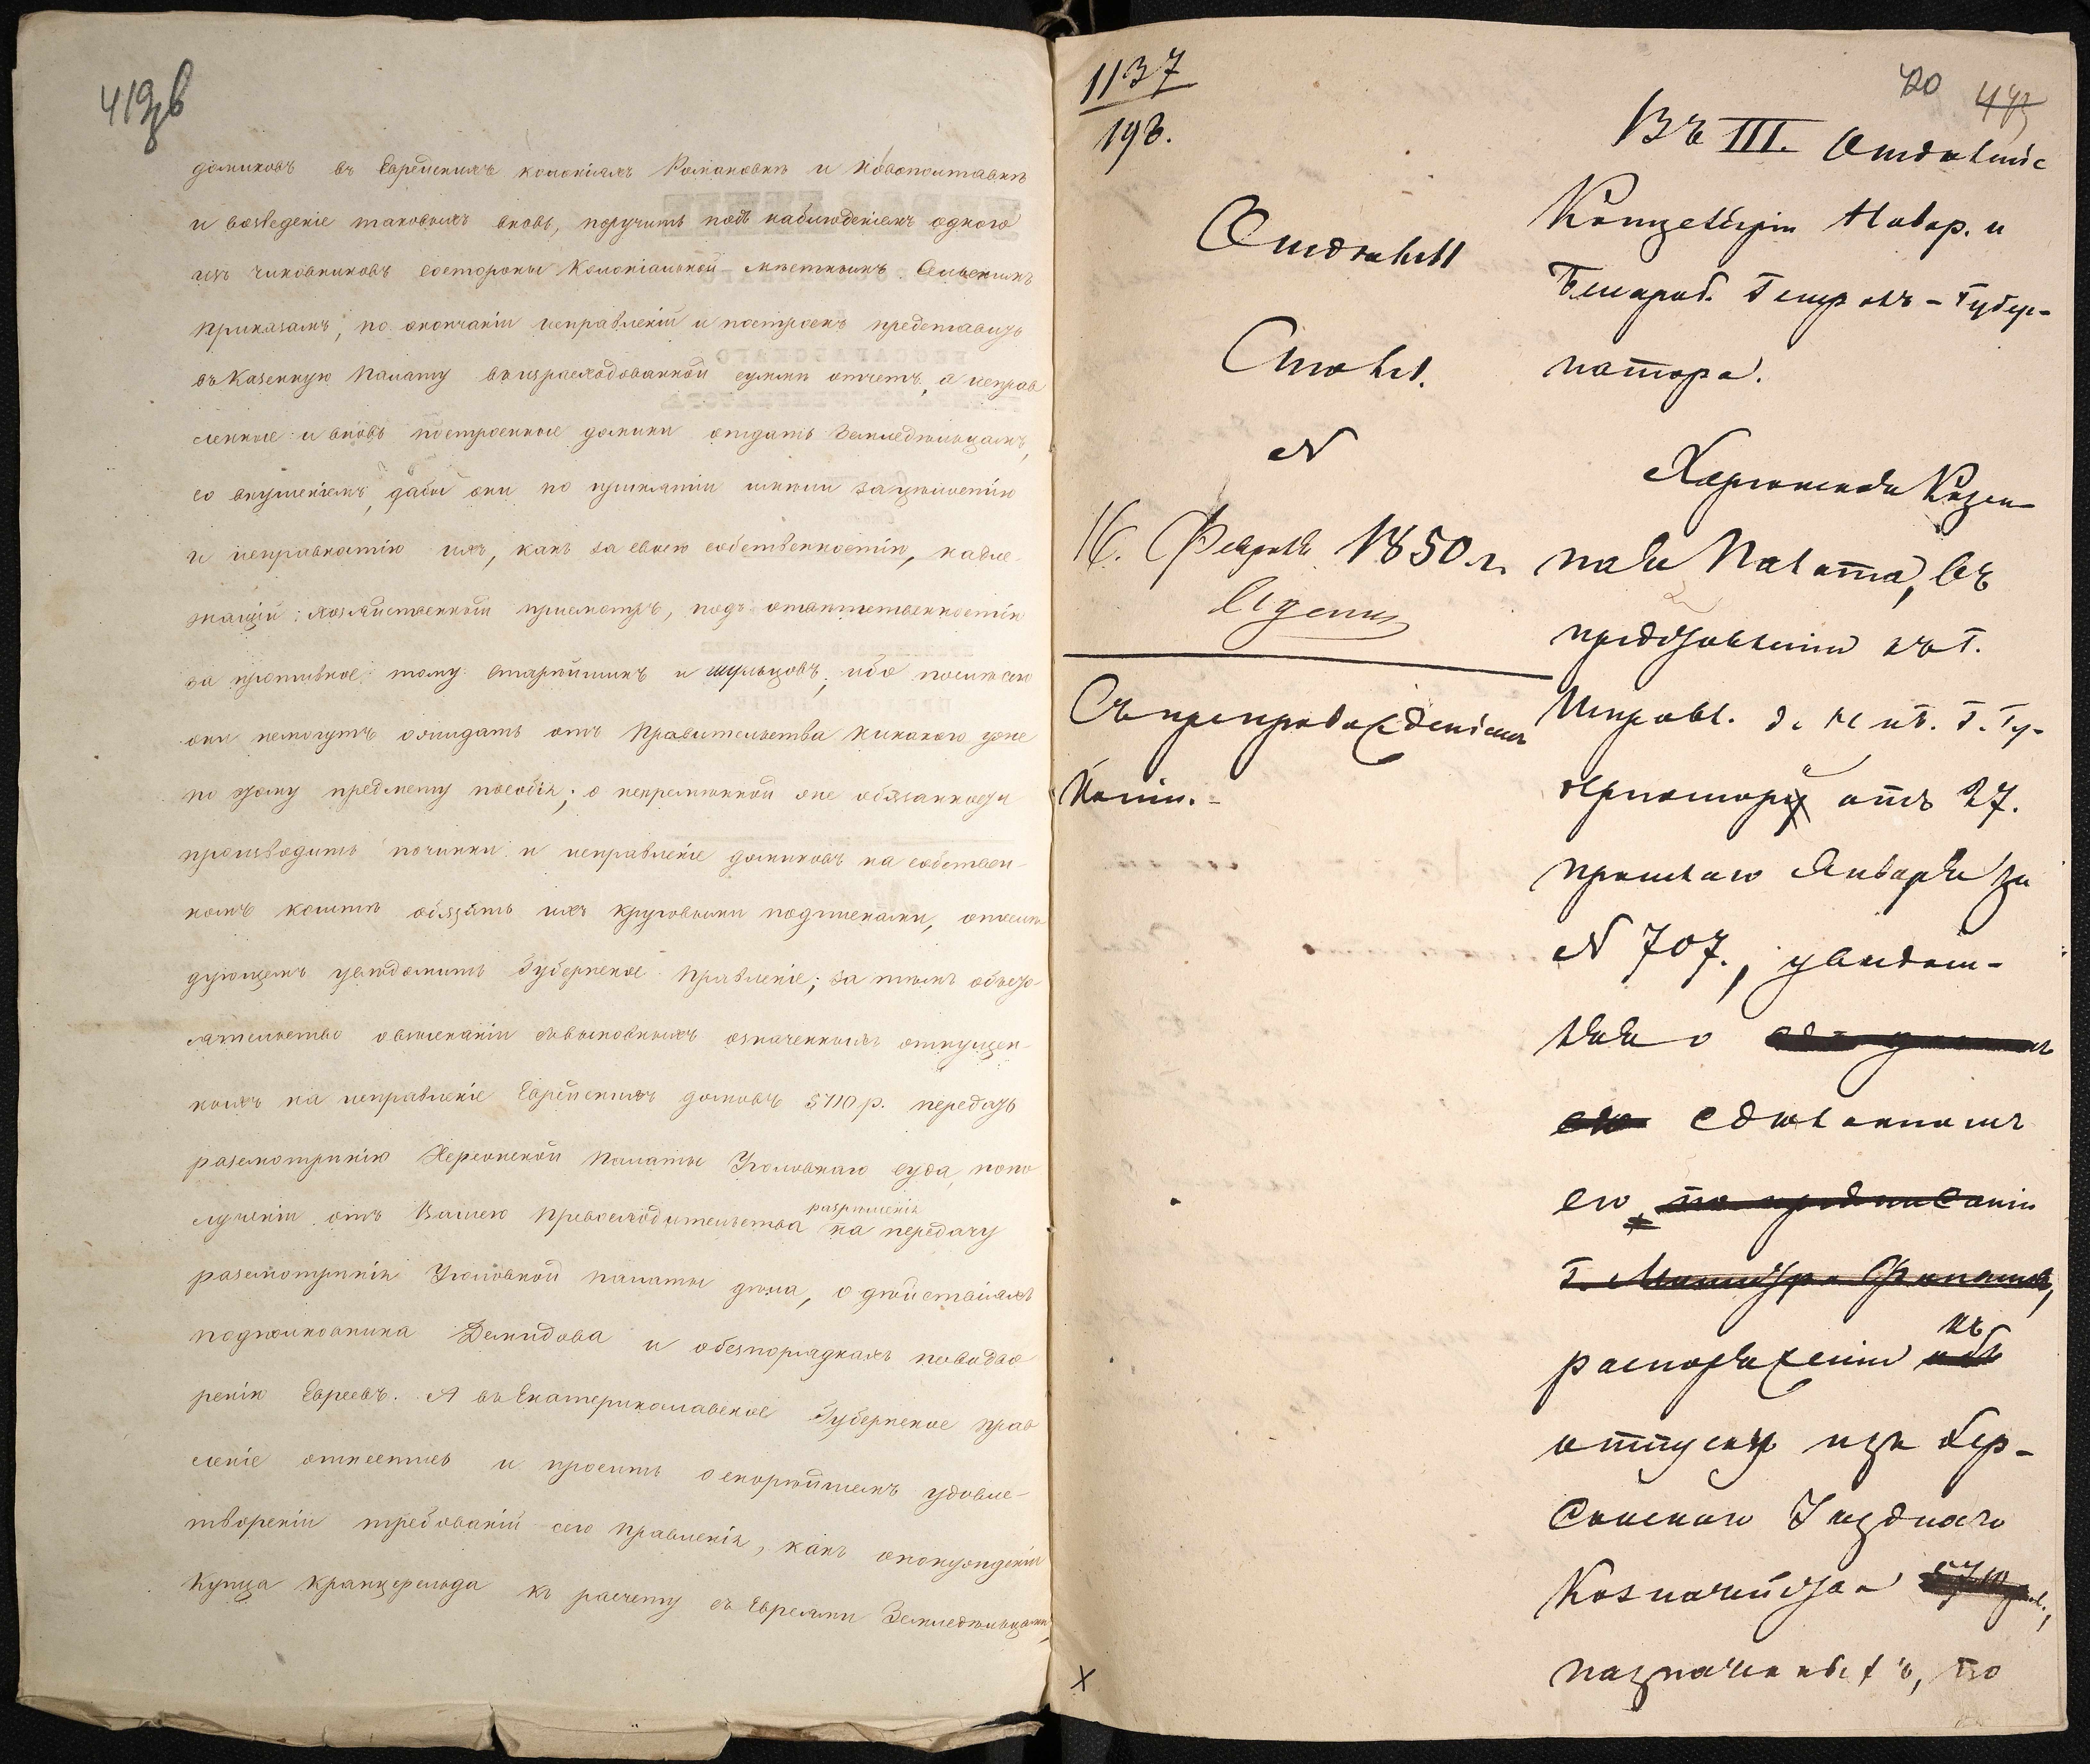 419 об
домиковъ въ Еврейскихъ колоніяхъ Романовкѣ и Новополтавкѣ
и возведеніе таковыхъ вновь, поручить подъ наблюденіемъ одного
изъ чиновниковъ состороны Колоніальной мѣстнымъ Сельскимъ
приказамъ, по окончаніи исправленій и построекъ представить
въ Казенную Палату въ израсходованной суммѣ отчетъ, а исправ
ленные и вновь построенные домики отдать Земледѣльцамъ,
со внушеніемъ, дабы они по принятіи имѣли за цѣлостію
и исправностію ихъ, какъ за своею собственностію, надле-
жащій хозяйственный присмотръ, подъ отвѣтственностію
за противное тому Старѣйшинъ и Шульцовъ, ибо послѣ сего
они немогутъ ожидать отъ Правительства никакого уже
по этому предмету пособія; о непремѣнной же обязанности
производить починки и исправленіе домиковъ на собствен-
номъ коштѣ обязать ихъ круговыми подписками, о послѣ
дующемъ увѣдомить Губернское Правленіе; за тѣмъ обстоя-
тельство овзысканіи съ виновныхъ означенныхъ отпущен-
ныхъ на исправленіе Еврейскихъ домовъ 5710 р. передать
разсмотрѣнію Херсонской Палаты Уголовнаго Суда, попо
лученіи отъ Вашего Превосходительства разрѣшенія на передачу
разсмотрѣнія Уголовной палаты дѣла, о дѣйствіяхъ
подполковника Демидова и обезпорядкахъ поводво
ренію Евреевъ. А въ Екатеринославское Губернское прав
леніе отнестись и просить о скорѣйшемъ удовле-
твореніи требованій сего Правленія, какъ опонужденіи
купца Кранцфельда къ расчету съ Евреями Земледѣльцами,
1137
198.
420
Въ III. Отдѣленіе
Канцеляріи Новор. и
Бессараб. Генералъ-Губер-
натора.
Отдѣлъ III
Столъ 1.
N
16. Февраля 1850 г.
Одесса
Съ препровожденіемъ
Копіи.-
Херсонская Казен-
ная Палата, въ
представленіи къ Г.
Исправл. д. Нов. Г. Гу-
бернатора отъ 27.
прошлаго Января за
N 707., увѣдом-
ляя о
сдѣланномъ
его по предписанію
Г. Министра Финансовъ,
распоряженіи къ
отпуску изъ Хер-
сонскаго Уѣзднаго
Казначейства 5710 руб.,
назначенныхъ, по
х